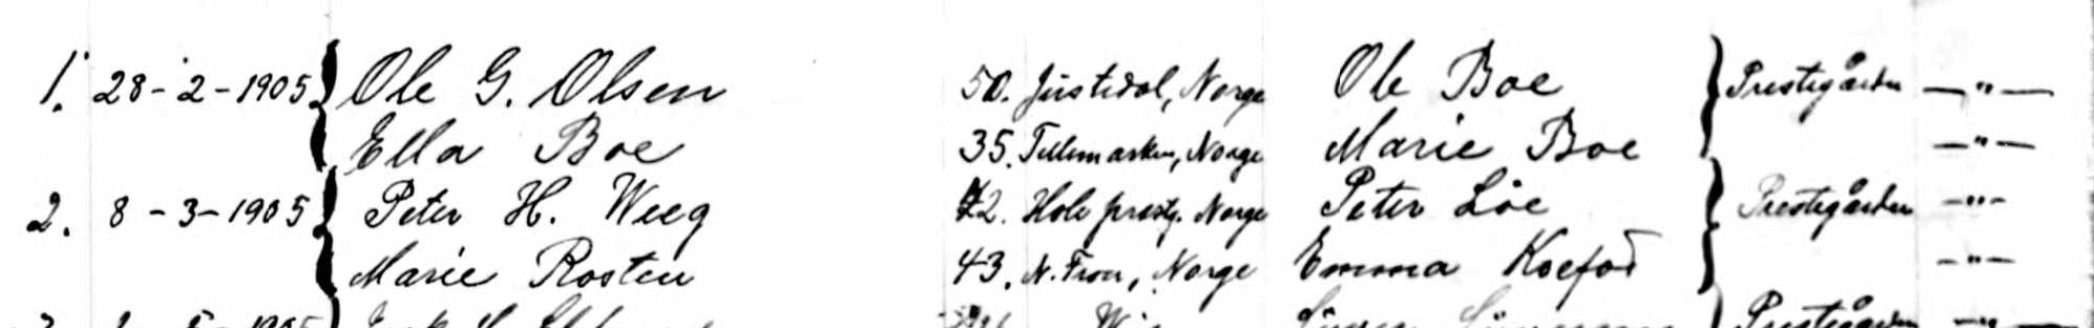 1. 28-2-1905 Ole G. Olsen 50. Justedal, Norge Ole Boe Prestegården —"—
Ella Boe 35. Tellemarken, Norge Marie Boe —"—
2. 8-3-1905 Peter H. Weeg 42. Hole prestg. Norge Peter Löe Prestegården —"—
Marie Rosten 43. N. Fron, Norge Emma Koefod —"—